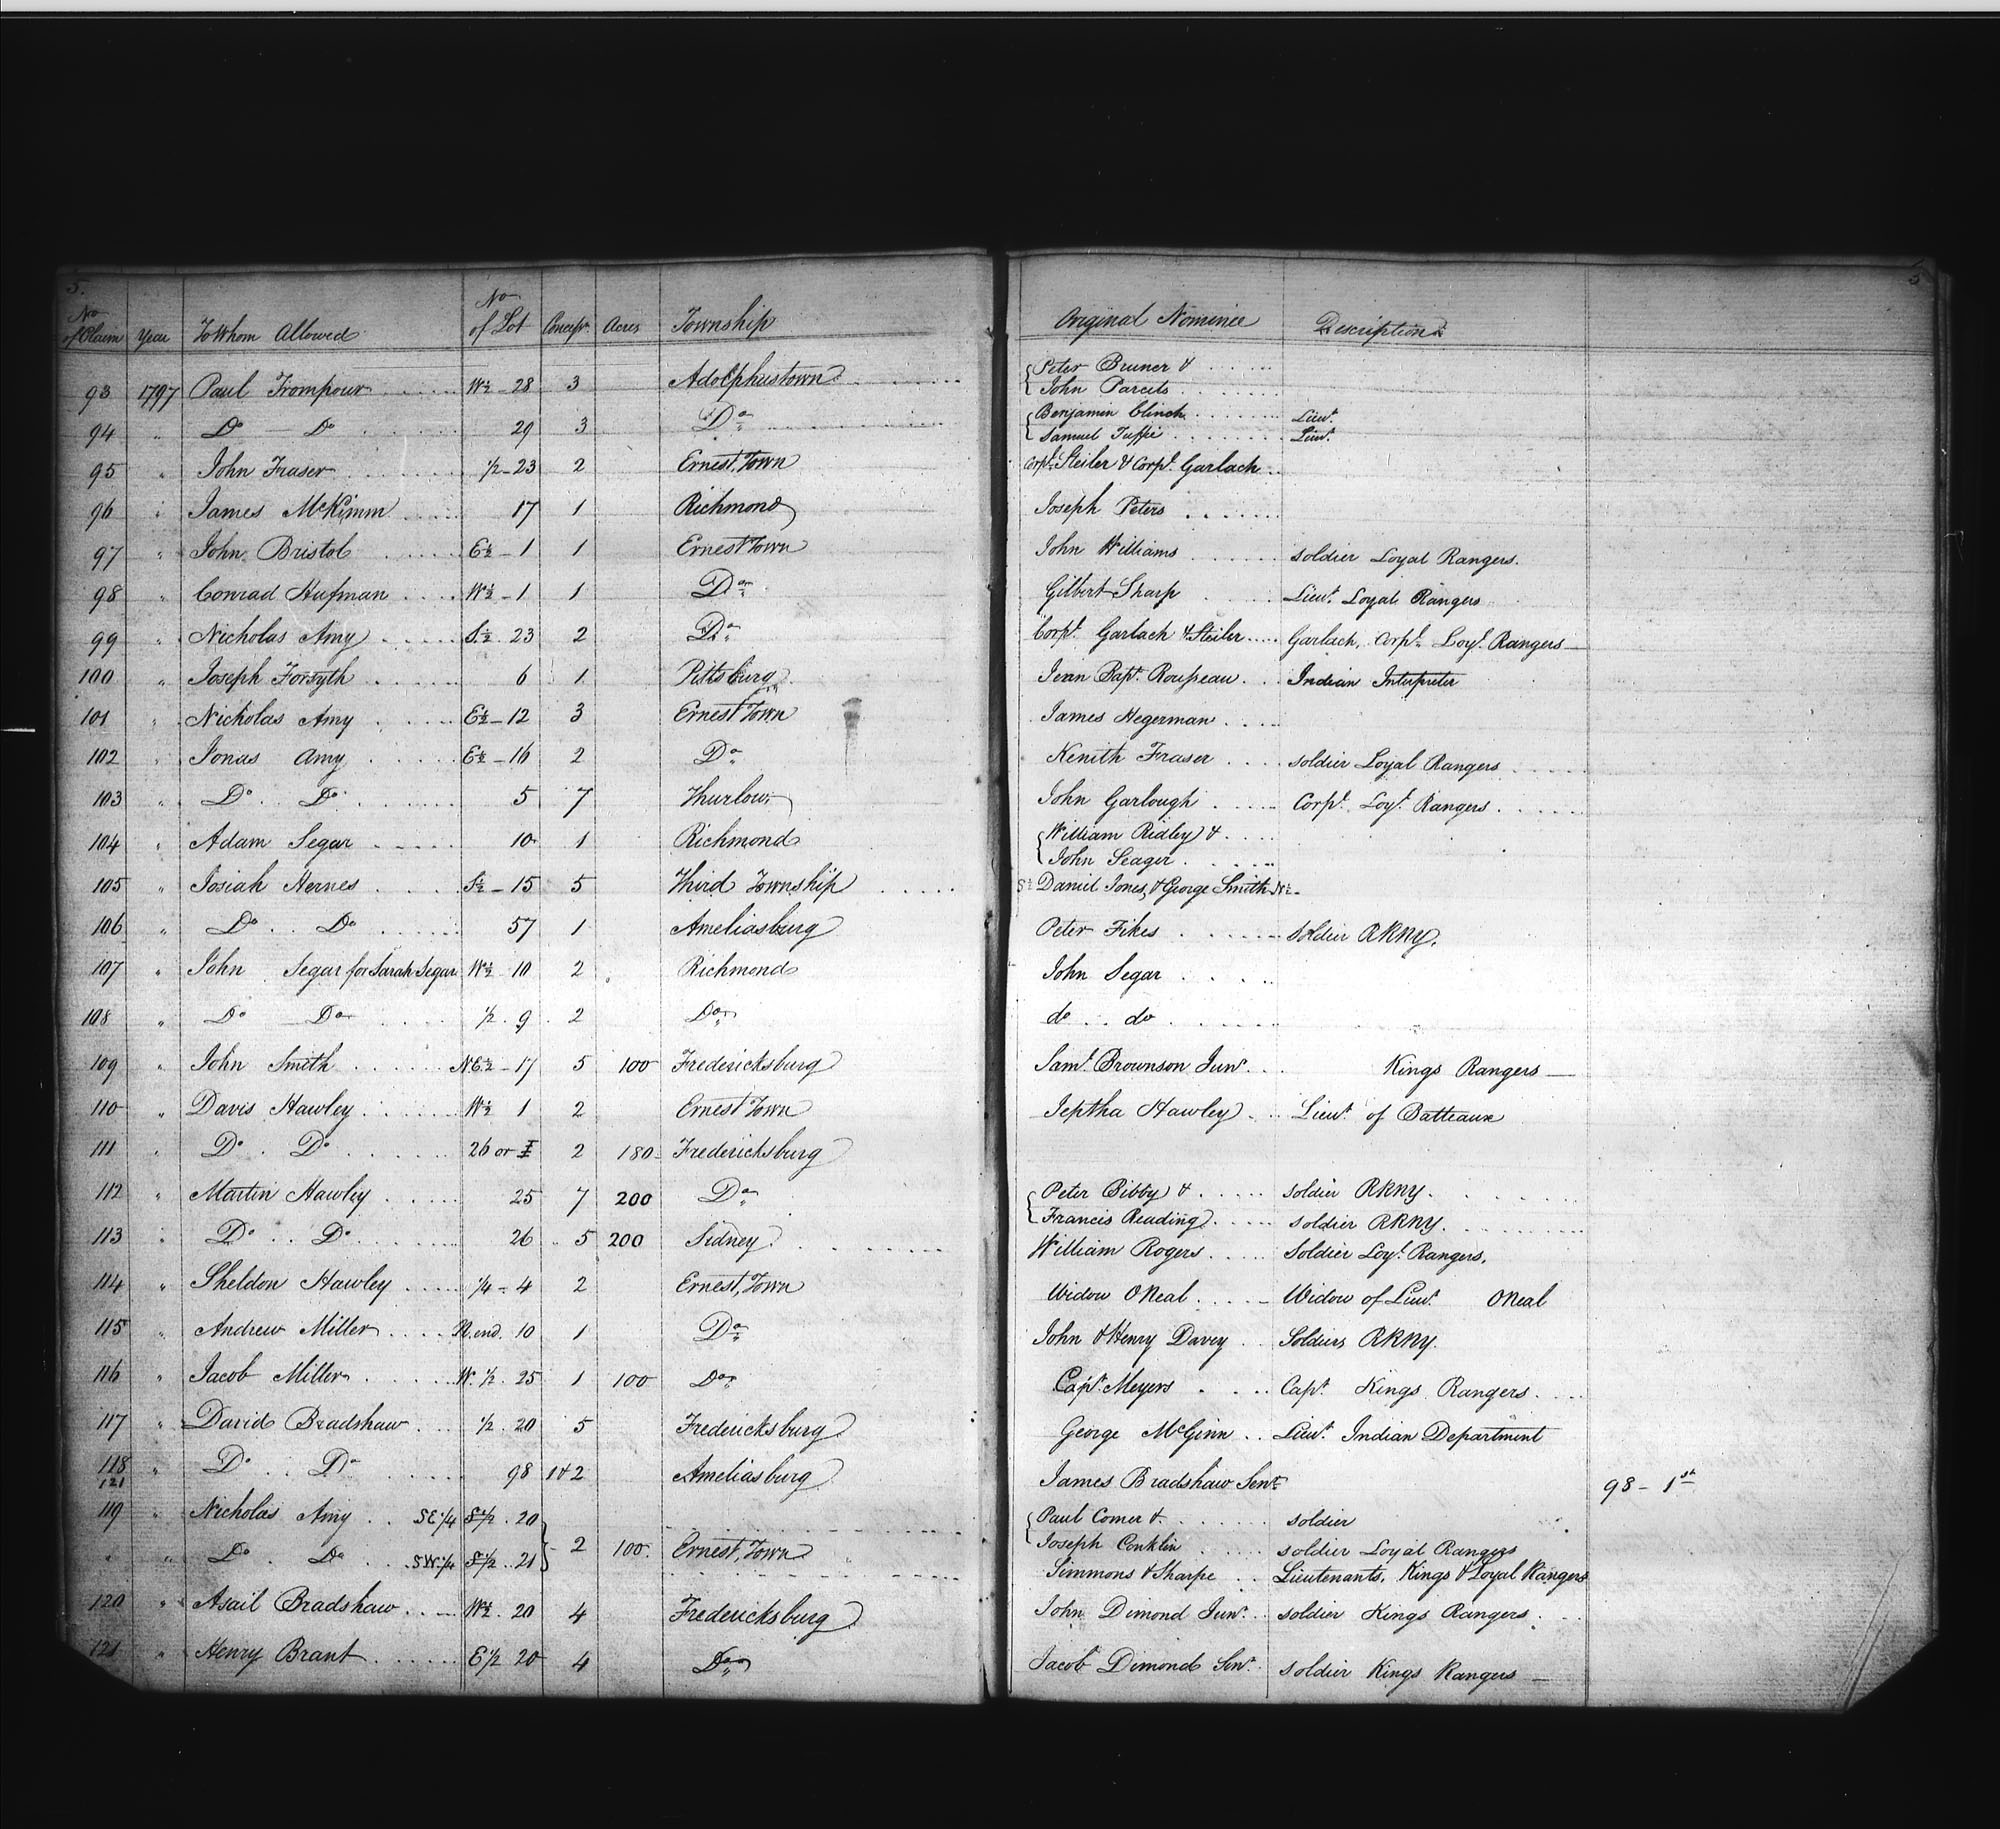 5. 5
No of Claim Year To Whom Allowed No of Lot Concess. Acres Township Original Nominee Description
93 1797 Paul Trompour W½ 28 3 Adolphustown { Peter Bruner &
John Parcels
94 " Do — Do 29 3 Do { Benjamin Clinch Lieut.
Samuel Tuffie Lieut.
95 " John Fraser ½ - 23 2 Ernest Town Corpl. Steiler & Corpl. Garlach
96 " James McKimm 17 1 Richmond Joseph Peters
97 " John Bristol E½ - 1 1 Ernest Town John Williams soldier Loyal Rangers.
98 " Conrad Hufman W½ - 1 1 Do Gilbert Sharp Lieut. Loyal Rangers
99 " Nicholas Amy S.½ 23 2 Do Corpl. Garlach & Steiler Garlach, Corpl. Loyl. Rangers
100 " Joseph Forsyth 6 1 Pittsburg Jean Bapt. Rousseau Indian Interpreter
101 " Nicholas Amy E½ - 12 3 Ernest Town James Hegerman
102 " Jonas Amy E½ - 16 2 Do Kenith Fraser soldier Loyal Rangers
103 " Do Do 5 7 Thurlow John Garlough Corpl. Loyl. Rangers
104 " Adam Segar 10 1 Richmond { William Ridley &
John Seager
105 " Josiah Hernes S½ - 15 5 Third Township S½ Daniel Jones, & George Smith N½
106 " Do Do 57 1 Ameliasburg Peter Fikes soldier RRNY.
107 " John Segar for Sarah Segar W½ 10 2 Richmond John Segar
108 " Do — Do ½ 9 2 Do do do
109 " John Smith N.E.½ - 17 5 100 Fredericksburg Saml. Brownson Junr. Kings Rangers
110 " Davis Hawley W½ 1 2 Ernest Town Jeptha Hawley Lieut. of Batteaux
111 " Do Do 26 or I 2 180 Fredericksburg
112 " Martin Hawley 25 7 200 Do { Peter Bibby & soldier RRNY.
Francis Reading soldier RRNY.
113 " Do Do 26 5 200 Sidney William Rogers Soldier Loyl. Rangers,
114 " Sheldon Hawley ¼ - 4 2 Ernest, Town Widow ONeal Widow of Lieut. ONeal
115 " Andrew Miller R. end. 10 1 Do John & Henry Davey Soldiers RRNY.
116 " Jacob Miller W. ½ 25 1 100 Do Capt. Meyers Capt. Kings Rangers
117 " David Bradshaw ½ 20 5 Fredericksburg George McGinn Lieut. Indian Department
118 " Do Do 98 1 & 2 Ameliasburg James Bradshaw Senr. 98 - 1st
121
119 " Nicholas Amy SE ¼ S½ 20 { Paul Comer & soldier
} 2 100. Ernest, Town Joseph Conklin soldier Loyal Rangers
" " Do Do SW ¼ S½ 21 Simmons & Sharpe Lieutenants, Kings & Loyal Rangers
120 " Asail Bradshaw W½ 20 4 Fredericksburg John Dimond Junr. soldier Kings Rangers
121 " Henry Brant E ½ 20 4 Do Jacob Dimond Senr. soldier Kings Rangers